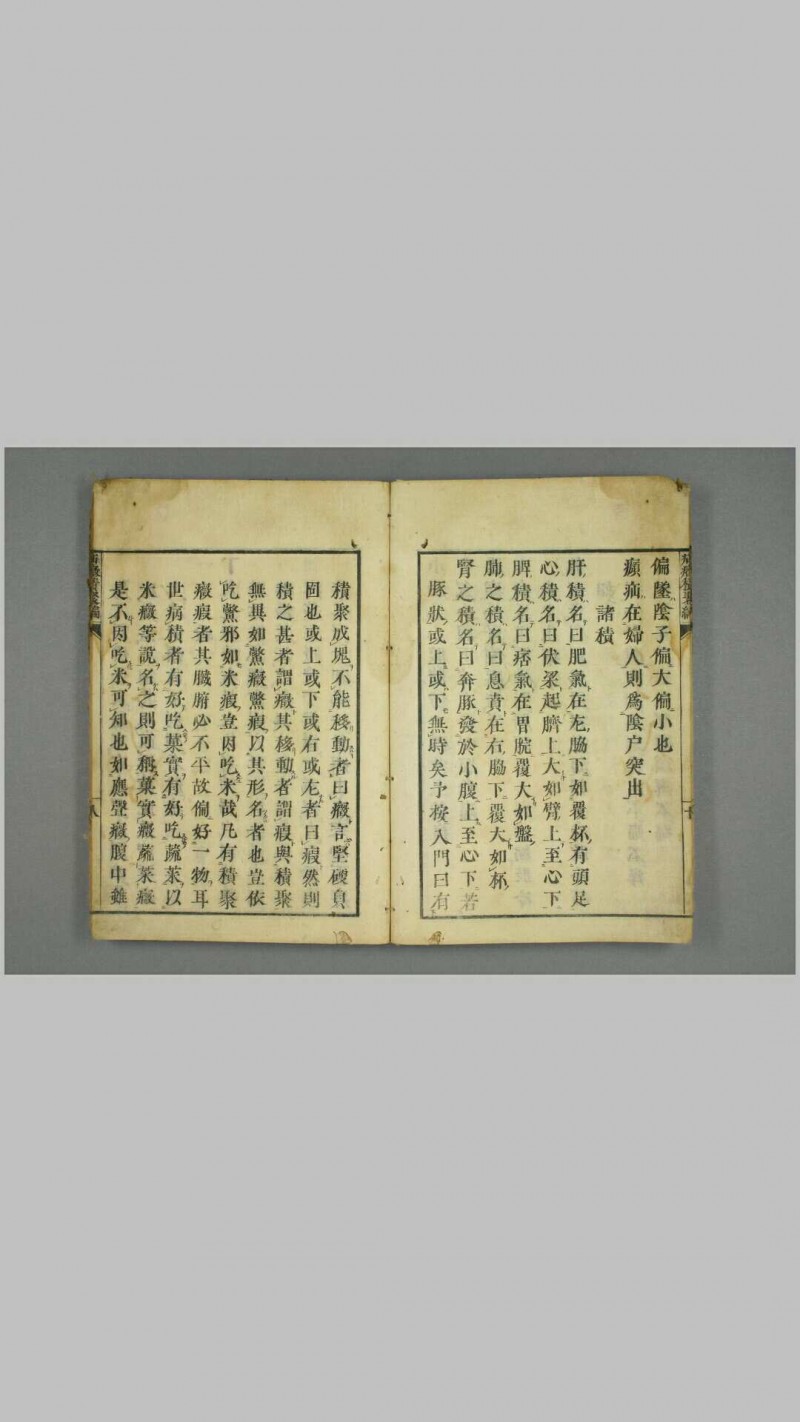 偏墜陰子偏大偏小也
㿗疝在婦人則爲陰户突出
諸積
肝積名曰肥氣在左脇下如覆杯有頭足
心積名曰伏梁起臍上大如臂上至心下
脾積名曰痞氣在胃脘覆大如盤
肺之積名曰息賁在右脇下覆大如杯
腎之積名曰奔豚發於小腹上至心下若
豚狀或上或下無時矣予按入門曰有
積聚成塊不能移動者曰癥言堅硬貞
固也或上或下或右或左者曰瘕然則
積之甚者謂癥其移動者謂瘕與積聚
無異如鱉癥鱉瘕以其形名者也豈依
吃鱉邪如米瘕豈因吃米哉凡有積聚
癥瘕者其臟腑必不平故偏好一物耳
世病積者有好吃菓實有好吃蔬菜以
米癥等說名之則可稱菓實癥蔬菜癥
是不因吃米可知也如應聲癥腹中雖
八